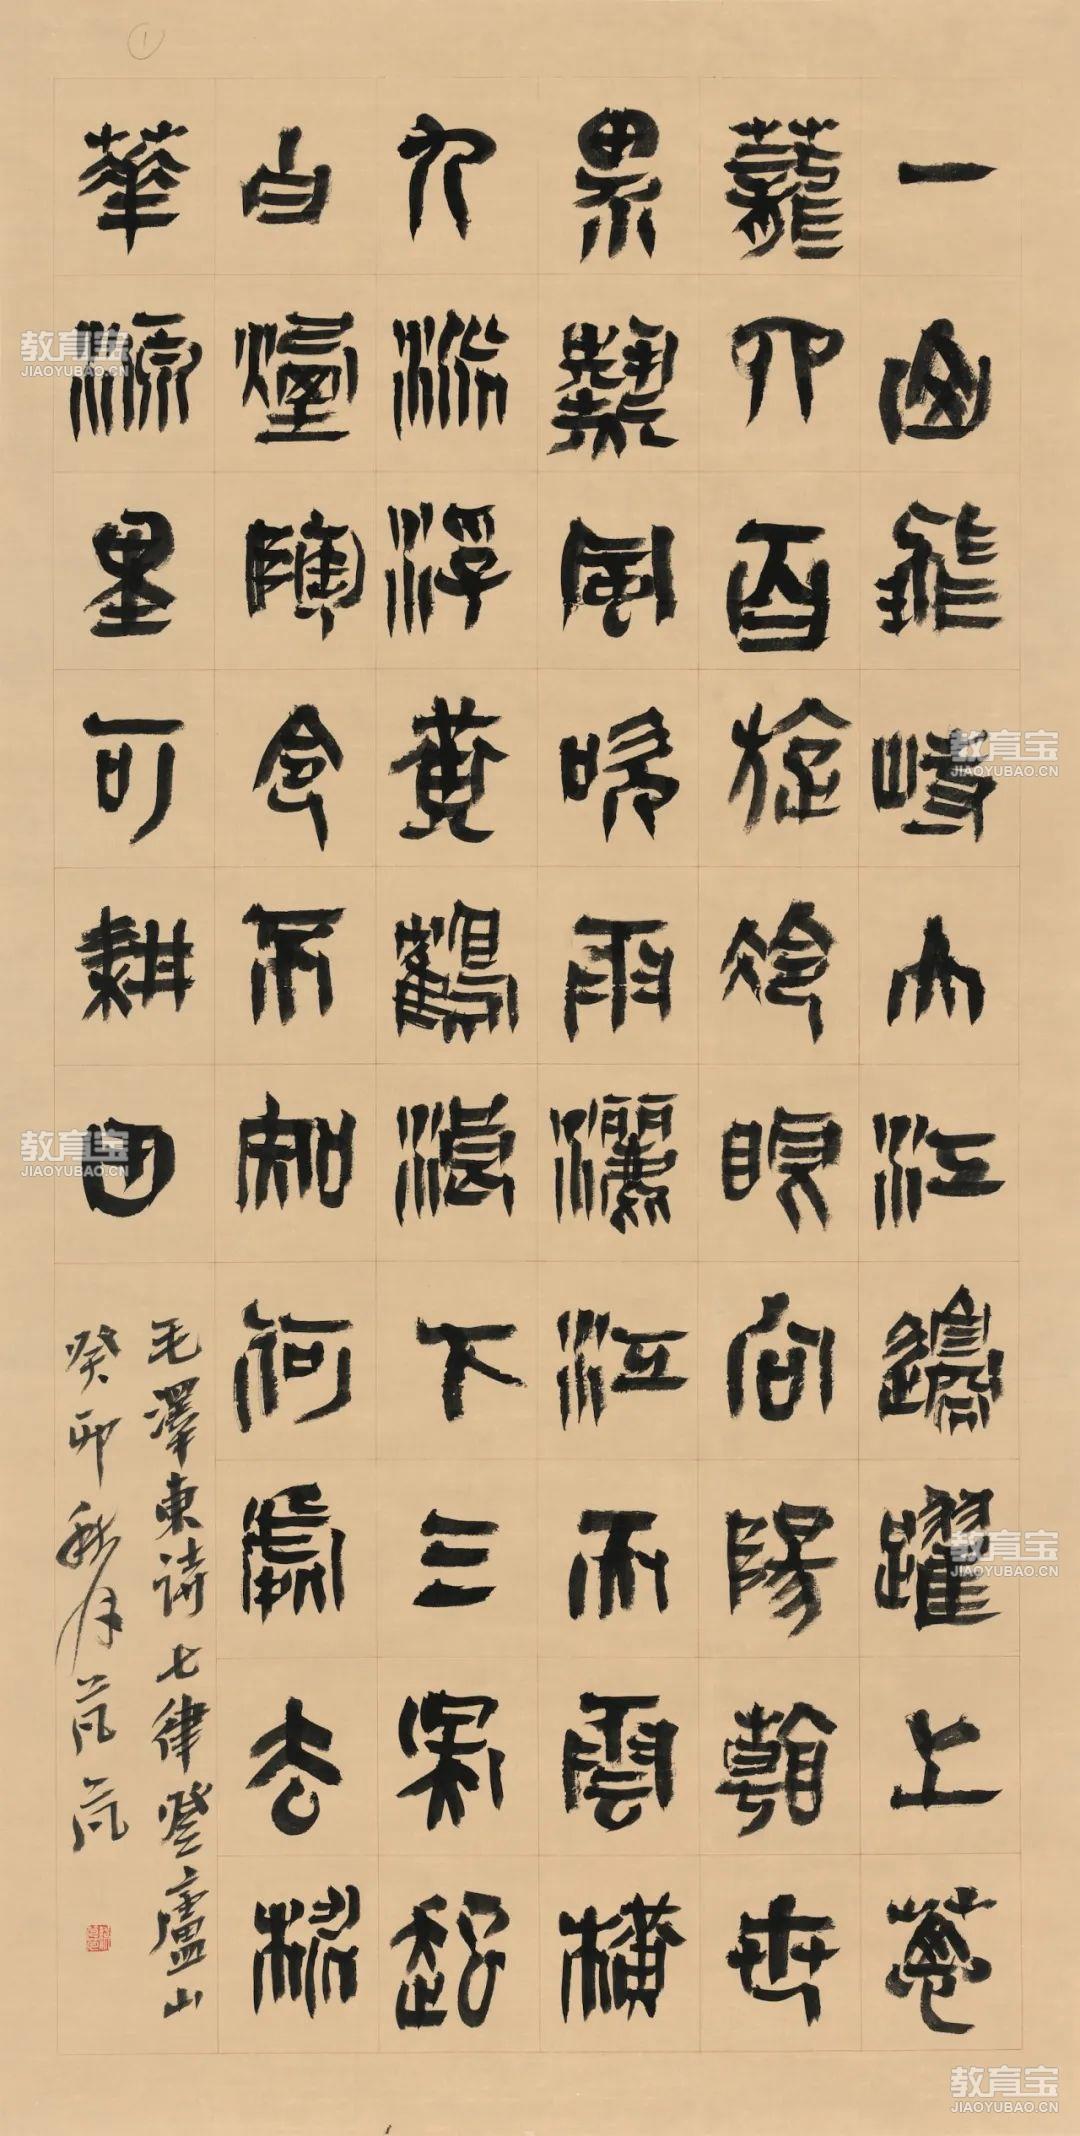 ①
一山飛峙大江邊躍上蔥
蘢四百旋冷眼向陽看世
界熱風吹雨灑江天雲橫
九派浮黃鶴浪下三吳起
白煙陶令不知何處去桃
華源里可耕田
毛澤東詩七律登廬山
癸卯秋月芃芃
教育宝
JIAOYUBAO.CN
教育宝
JIAOYUBAO.CN
教育宝
JIAOYUBAO.CN
教育宝
JIAOYUBAO.CN
教育宝
JIAOYUBAO.CN